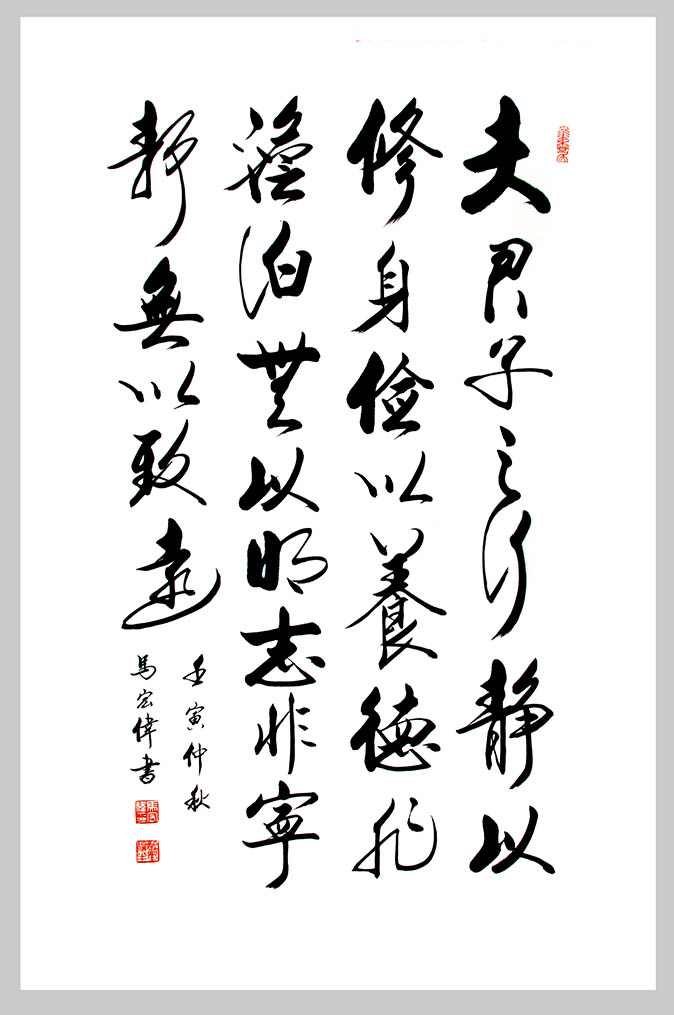 夫君子之行静以
修身俭以養德非
澹泊無以明志非寧
静無以致遠
壬寅仲秋
馬宏偉書